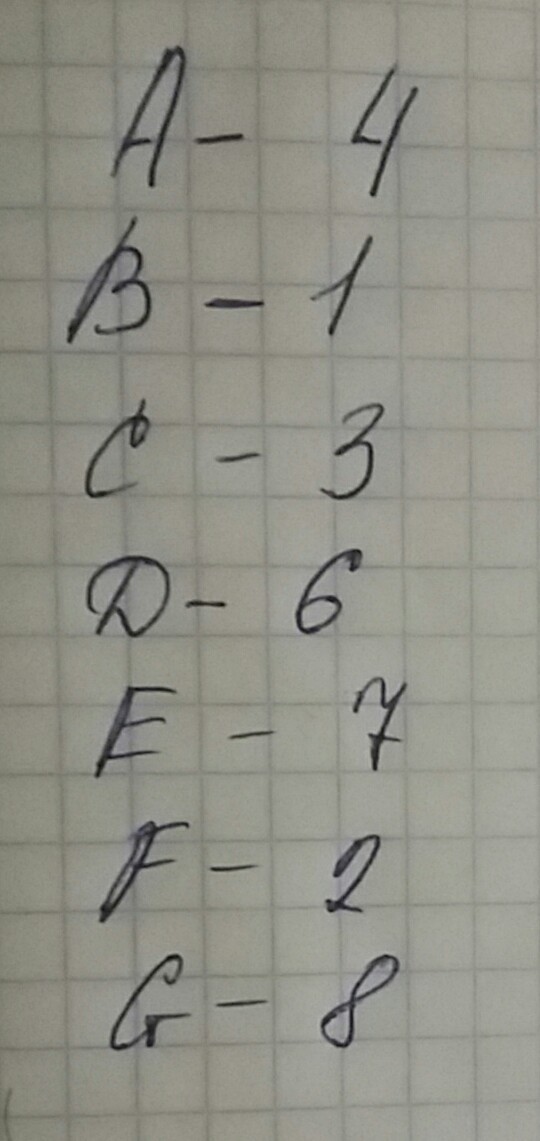 A - 4
B - 1
C - 3
D - 6
E - 7
F - 2
G - 8